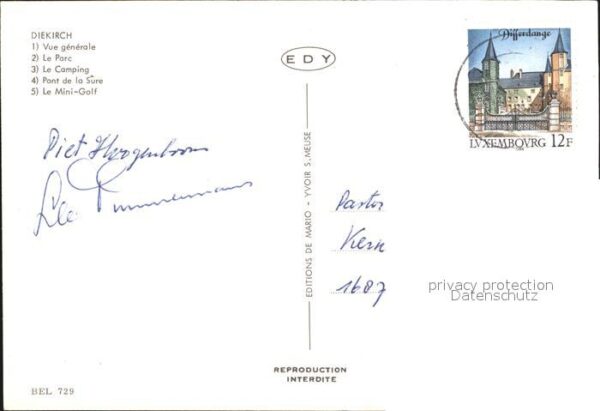 DIEKIRCH
1) Vue générale
2) Le Parc
3) Le Camping
4) Pont de la Sûre
5) Le Mini-Golf
EDY
Differdange
LVXEMBOVRG 12F
Piet Hoogenboom
Timmermans
EDITIONS DE MARIO - YVOIR S. MEUSE
Pastor
Kern
1687
privacy protection
Datenschutz
REPRODUCTION
INTERDITE
BEL 729